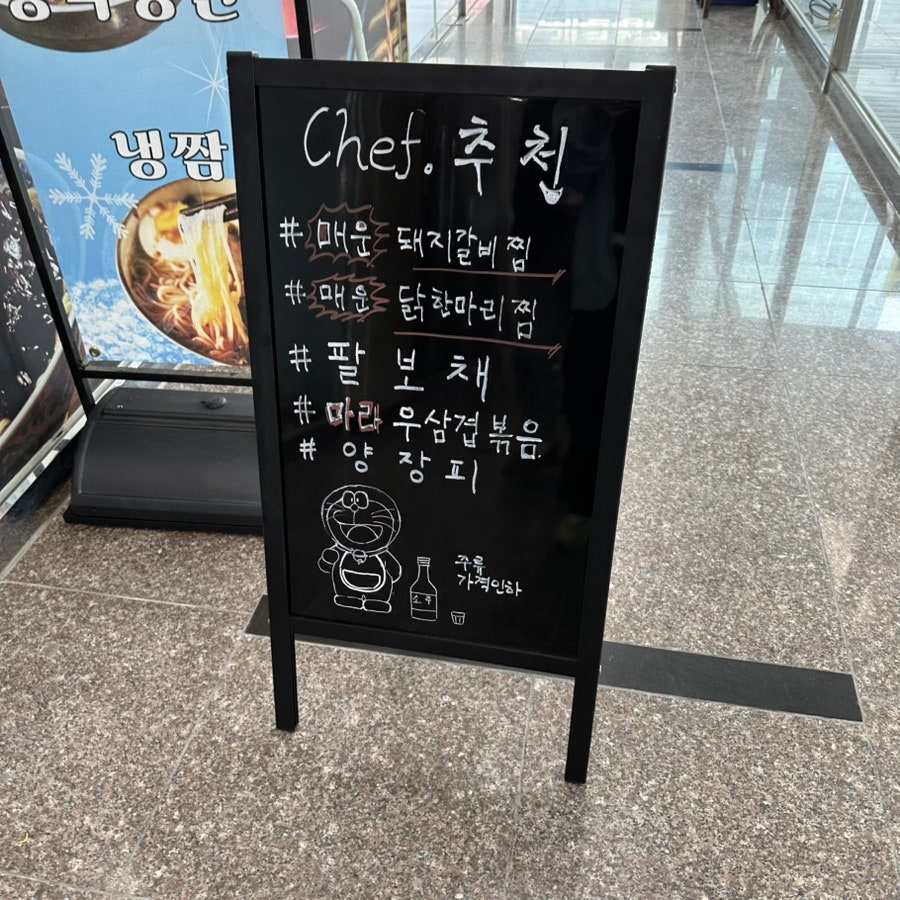 냉짬
Chef. 추천
# 매운 돼지갈비찜
# 매운 닭한마리찜
# 팔보채
# 마라 우삼겹볶음
# 양장피
소주
주류
가격인하